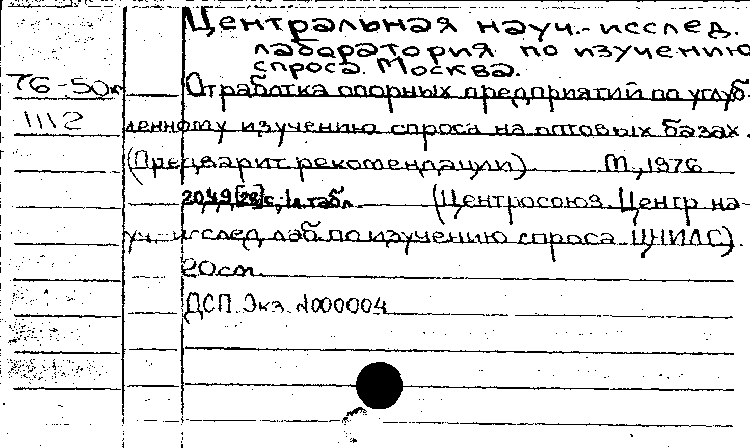 Центральная науч.-исслед.
лаборатория по изучению
спроса. Москва.
76-50к Отработка опорных предприятий по углуб-
1112 ленному изучению спроса на оптовых базах.
(Предварит. рекомендации) М., 1976
[28] с., 1 л. табл. (Центросоюз. Центр на-
уч. исслед. лаб. по изучению спроса ЦНИЛС).
20 см.
ДСП. Экз. N000004